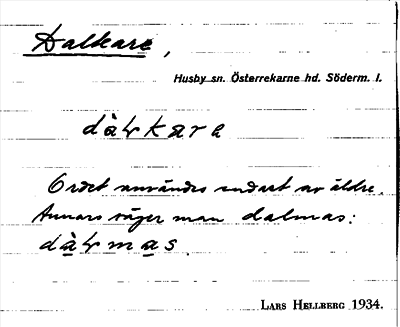 Dalkare,
Husby sn. Österrekarne hd. Söderm. l.
dàɫkara
Ordet användes endast av äldre.
Annars säger man dalmas:
dàɫmas.
LARS HELLBERG 1934.